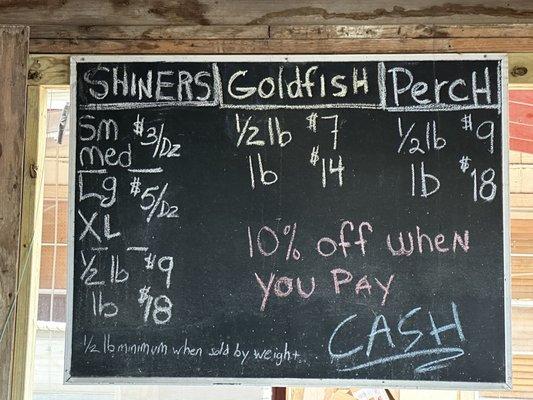 SHINERS GOLDFISH PERCH
Sm $3/Dz
med
Lg $5/Dz
XL
1/2 lb $9
lb $18
1/2 lb $7
lb $14
1/2 lb $9
lb $18
10% off when
you PAY
CASH
1/2 lb minimum when sold by weight